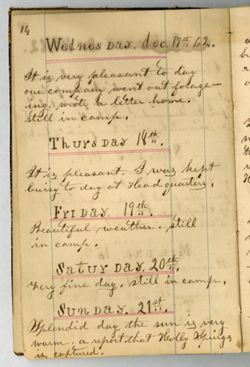 14
Wednesday. Dec. 17th 62.
It is very pleasant to day
our company went out forage-
ing. wrote a letter home.
Still in camp.
Thursday 18th.
It is pleasant. I was kept
buisy to day at Head quarters.
Friday. 19th.
Beautiful weather. Still
in camp.
Saturday. 20th.
very fine day. still in camp.
Sunday. 21st.
Splendid day the sun is very
warm. a report that Holly Springs
is captured.